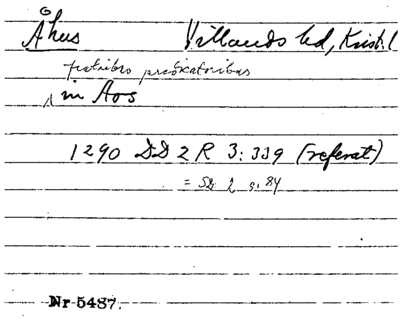 Åhus Villands hd, Krist.l
fratribus predicatoribus
in Aos
1290 DD 2 R 3:339 (referat)
= SD 2 s. 84
Nr 5487.